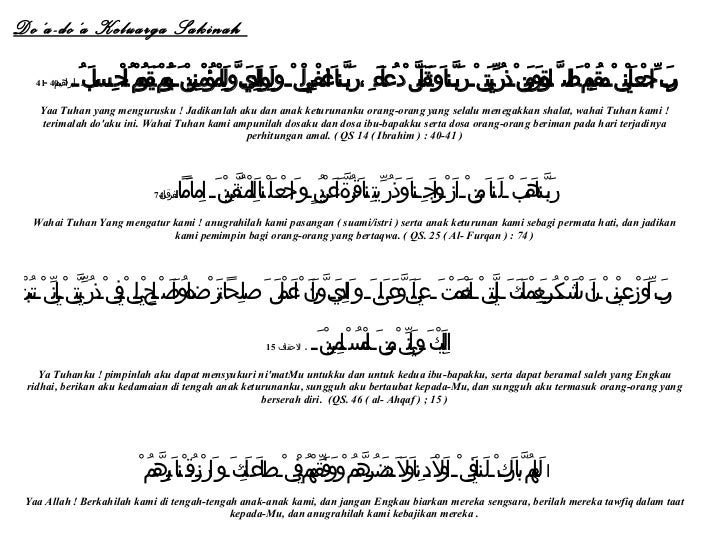 Do'a-do'a Keluarga Sakinah
رَبِّ اجْعَلْنِيْ مُقِيْمَ الصَّلوةِ وَمِنْ ذُرِّيَّتِيْ رَبَّنَا وَتَقَبَّلْ دُعَاءِ ، رَبَّنَا اغْفِرْلِيْ وَلِوَالِدَيَّ وَلِلْمُؤْمِنِيْنَ يَوْمَ يَقُوْمُ الْحِسَابُ ـ ابراهيم 40-41
Yaa Tuhan yang mengurusku ! Jadikanlah aku dan anak keturunanku orang-orang yang selalu menegakkan shalat, wahai Tuhan kami !
terimalah do'aku ini. Wahai Tuhan kami ampunilah dosaku dan dosa ibu-bapakku serta dosa orang-orang beriman pada hari terjadinya
perhitungan amal. ( QS 14 ( Ibrahim ) : 40-41 )
رَبَّنَا هَبْ لَنَا مِنْ اَزْوَاجِنَا وَذُرِّيّتِنَا قُرَّةَ اَعْيُنٍ وَاجْعَلْنَا لِلْمُتَّقِيْنَ اِمَامًا الفرقان 74
Wahai Tuhan Yang mengatur kami ! anugrahilah kami pasangan ( suami/istri ) serta anak keturunan kami sebagi permata hati, dan jadikan
kami pemimpin bagi orang-orang yang bertaqwa. ( QS. 25 ( Al- Furqan ) : 74 )
رَبِّ اَوْزِعْنِيْ اَنْ اَشْكُرَ نِعْمَتَكَ الَّتِيْ اَنْعَمْتَ عَلَيَّ وَعَلَى وَالِدَيَّ وَاَنْ اَعْمَلَ صَالِحًا تَرْضَاهُ وَاَصْلِحْ لِيْ فِيْ ذُرِّيَّتِيْ اِنِّيْ تُبْتُ
اِلَيْكَ وَاِنِّيْ مِنَ الْمُسْلِمِيْنَ ـ . الاحقاف 15
Ya Tuhanku ! pimpinlah aku dapat mensyukuri ni'matMu untukku dan untuk kedua ibu-bapakku, serta dapat beramal saleh yang Engkau
ridhai, berikan aku kedamaian di tengah anak keturunanku, sungguh aku bertaubat kepada-Mu, dan sungguh aku termasuk orang-orang yang
berserah diri.  (QS. 46 ( al- Ahqaf ) ; 15 )
اَللّهُمَّ بَارِكْ لَنَا فِيْ اَوْلاَدِنَا وَلاَ تَضُرَّهُمْ وَوَفِّقْهُمْ فِيْ طَاعَتِكَ وَارْزُقْنَا بِرَّهُمْ
Yaa Allah ! Berkahilah kami di tengah-tengah anak-anak kami, dan jangan Engkau biarkan mereka sengsara, berilah mereka tawfiq dalam taat
kepada-Mu, dan anugrahilah kami kebajikan mereka .